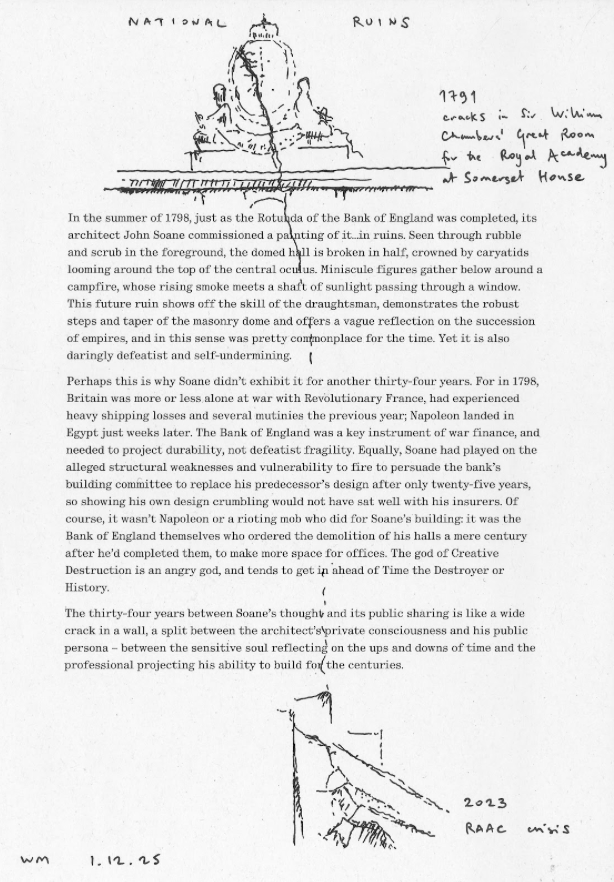 NATIONAL RUINS
1791
cracks in Sir William
Chambers' Great Room
for the Royal Academy
at Somerset House
In the summer of 1798, just as the Rotunda of the Bank of England was completed, its
architect John Soane commissioned a painting of it...in ruins. Seen through rubble
and scrub in the foreground, the domed hall is broken in half, crowned by caryatids
looming around the top of the central oculus. Miniscule figures gather below around a
campfire, whose rising smoke meets a shaft of sunlight passing through a window.
This future ruin shows off the skill of the draughtsman, demonstrates the robust
steps and taper of the masonry dome and offers a vague reflection on the succession
of empires, and in this sense was pretty commonplace for the time. Yet it is also
daringly defeatist and self-undermining.
Perhaps this is why Soane didn't exhibit it for another thirty-four years. For in 1798,
Britain was more or less alone at war with Revolutionary France, had experienced
heavy shipping losses and several mutinies the previous year; Napoleon landed in
Egypt just weeks later. The Bank of England was a key instrument of war finance, and
needed to project durability, not defeatist fragility. Equally, Soane had played on the
alleged structural weaknesses and vulnerability to fire to persuade the bank's
building committee to replace his predecessor's design after only twenty-five years,
so showing his own design crumbling would not have sat well with his insurers. Of
course, it wasn't Napoleon or a rioting mob who did for Soane's building: it was the
Bank of England themselves who ordered the demolition of his halls a mere century
after he'd completed them, to make more space for offices. The god of Creative
Destruction is an angry god, and tends to get in ahead of Time the Destroyer or
History.
The thirty-four years between Soane's thought and its public sharing is like a wide
crack in a wall, a split between the architect's private consciousness and his public
persona – between the sensitive soul reflecting on the ups and downs of time and the
professional projecting his ability to build for the centuries.
2023
RAAC crisis
WM 1.12.25